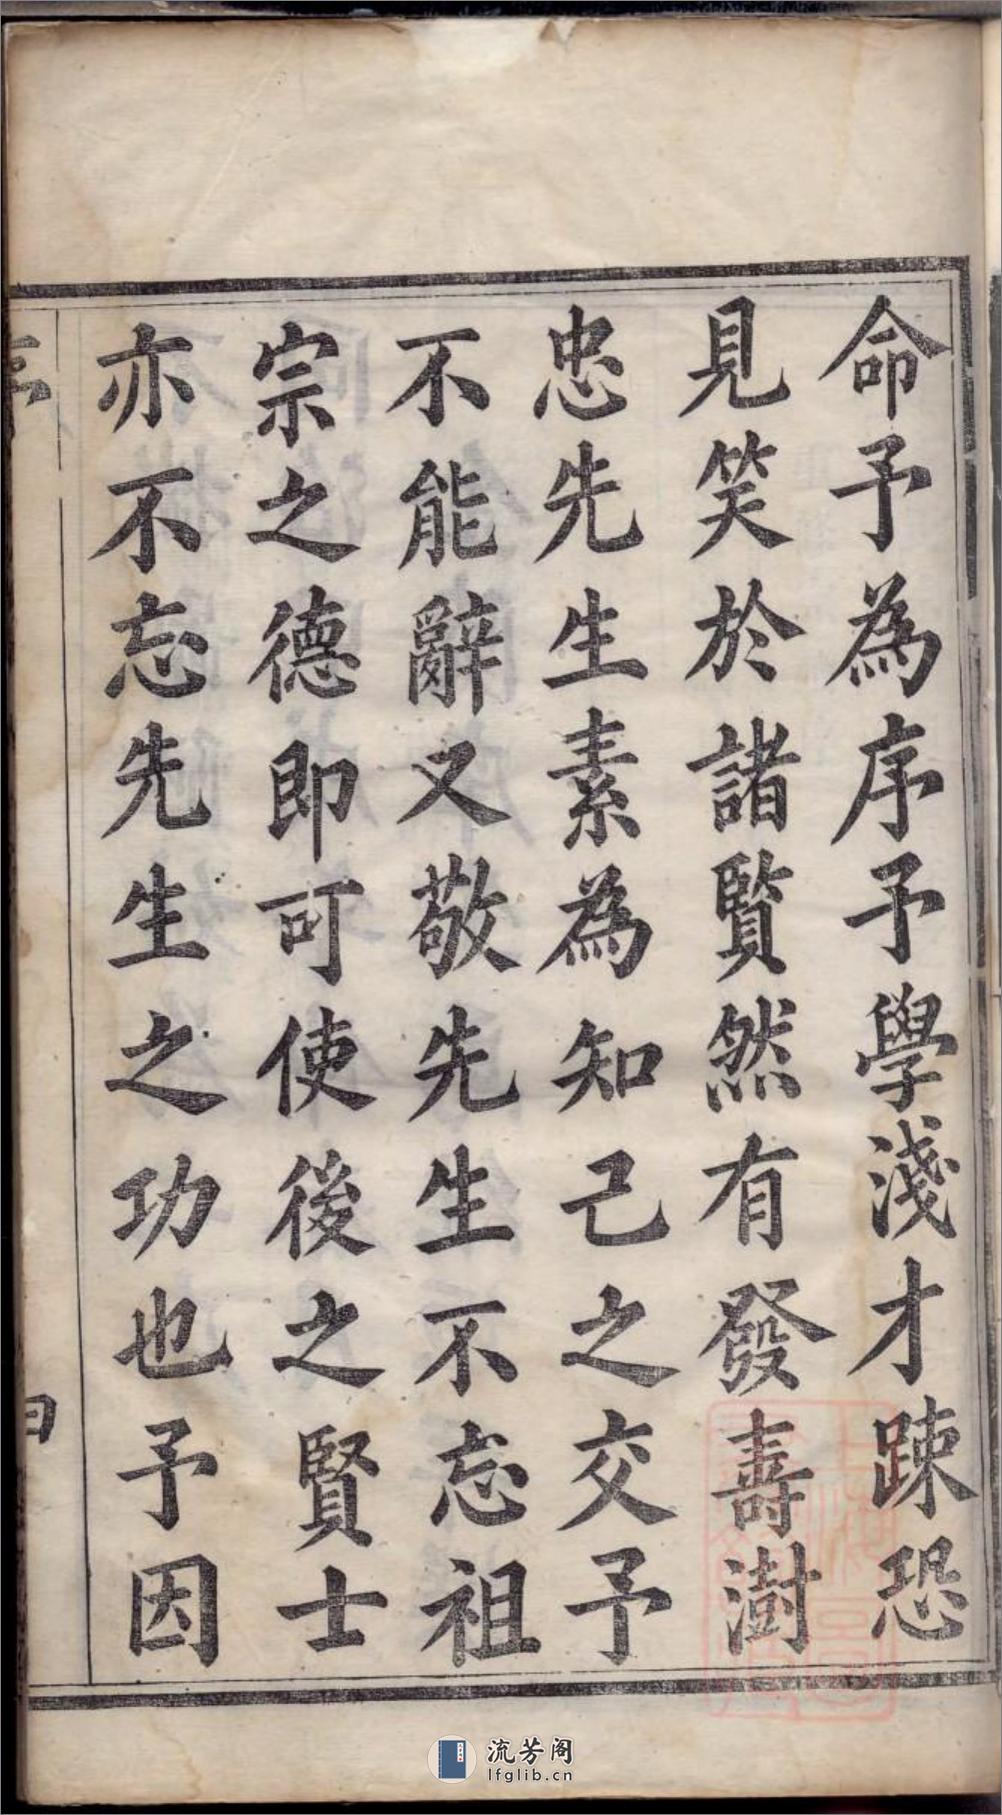 命予為序予學淺才踈恐
見笑於諸賢然有發壽澍
忠先生素為知己之交予
不能辭又敬先生不忘祖
宗之德即可使後之賢士
亦不忘先生之功也予因
流芳阁
lfglib.cn